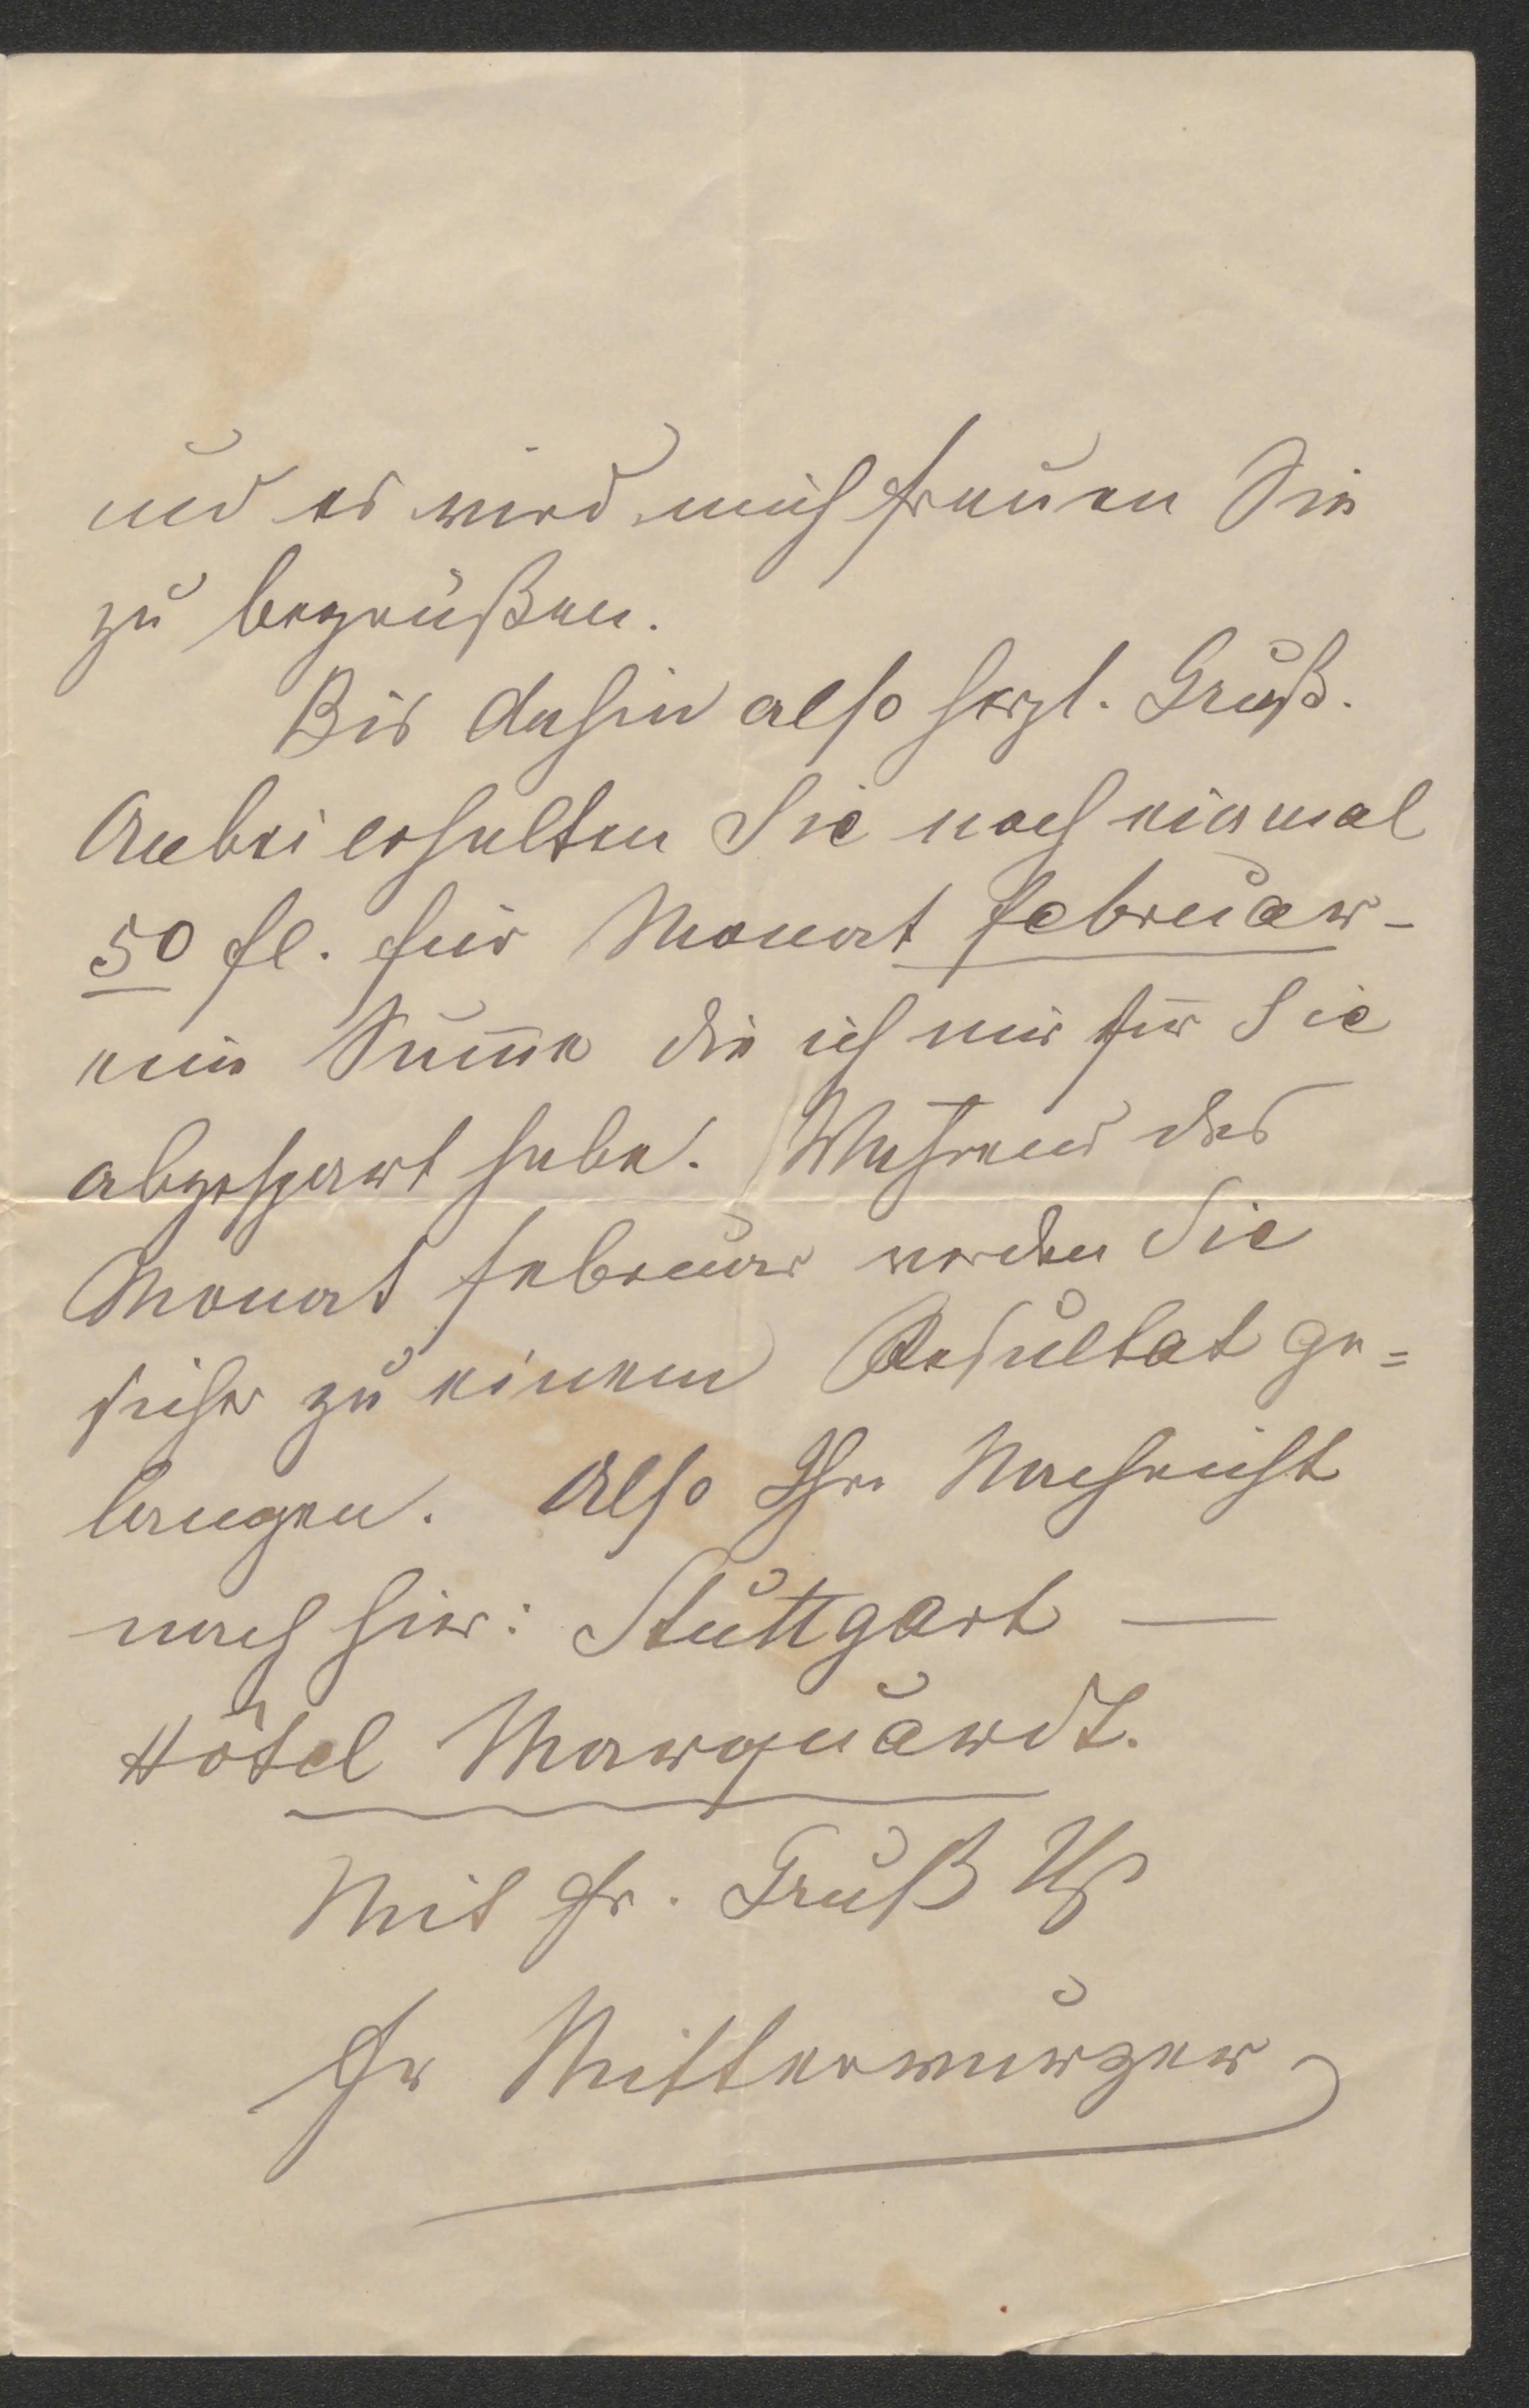 und es wird mich freuen Sie
zu begrüßen.
Bis dahin also herzl. Gruß.
Anbei erhalten Sie noch einmal
50 fl. für Monat Februar -
eine Sum̄e die ich mir für Sie
abgespart habe. Während des
Monat Februar werden Sie
sicher zu einem Resultat ge=
langen. Also Ihre Nachricht
nach hier: Stuttgart —
Hôtel Marquardt.
Mit fr. Gruß
Fr Mitterwurzer